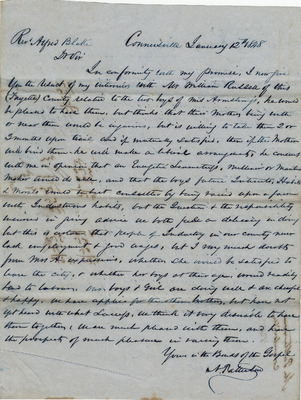 Rev Alfred Blake Connersville January 12th 1848
Dr Sir
In conformity with my promise, I now give
You the result of my interview with Mr William Russell of this
(Fayette) County relative to the two boys of Mrs Armstrongs, he would
be pleased to have them, but thinks that their Mother being with
or near them would be injurious, but is willing to take them 2 or
3 months upon trial and if mutually satisfied, then if the Mother
will bind them he will make a liberal arrangement, he concurs
with me in opinion that an Energetic
Mother and that the boys future Interests, Habits
& Morals would be best consulted by being raised upon a farm
with Industrious habits, but the Question & the responsibility
involved in giving advice we both feel a delicacy in doing
but this is certain that people of Industry in our county never
lack employment & good wages, but I very much doubt
from Mrs A experience, whether she would be satisfied to
leave the city, & whether her boys at their age would readily
take to labour, our boys & Girl are doing well & are cheerful
& happy, we have applied for the other brothers, but have not
yet heard with what success, We think it very desirable to have
them together, we are much pleased with them, and have
the prospect of much pleasure in raising them.
Yours in the Bonds of the Gospel